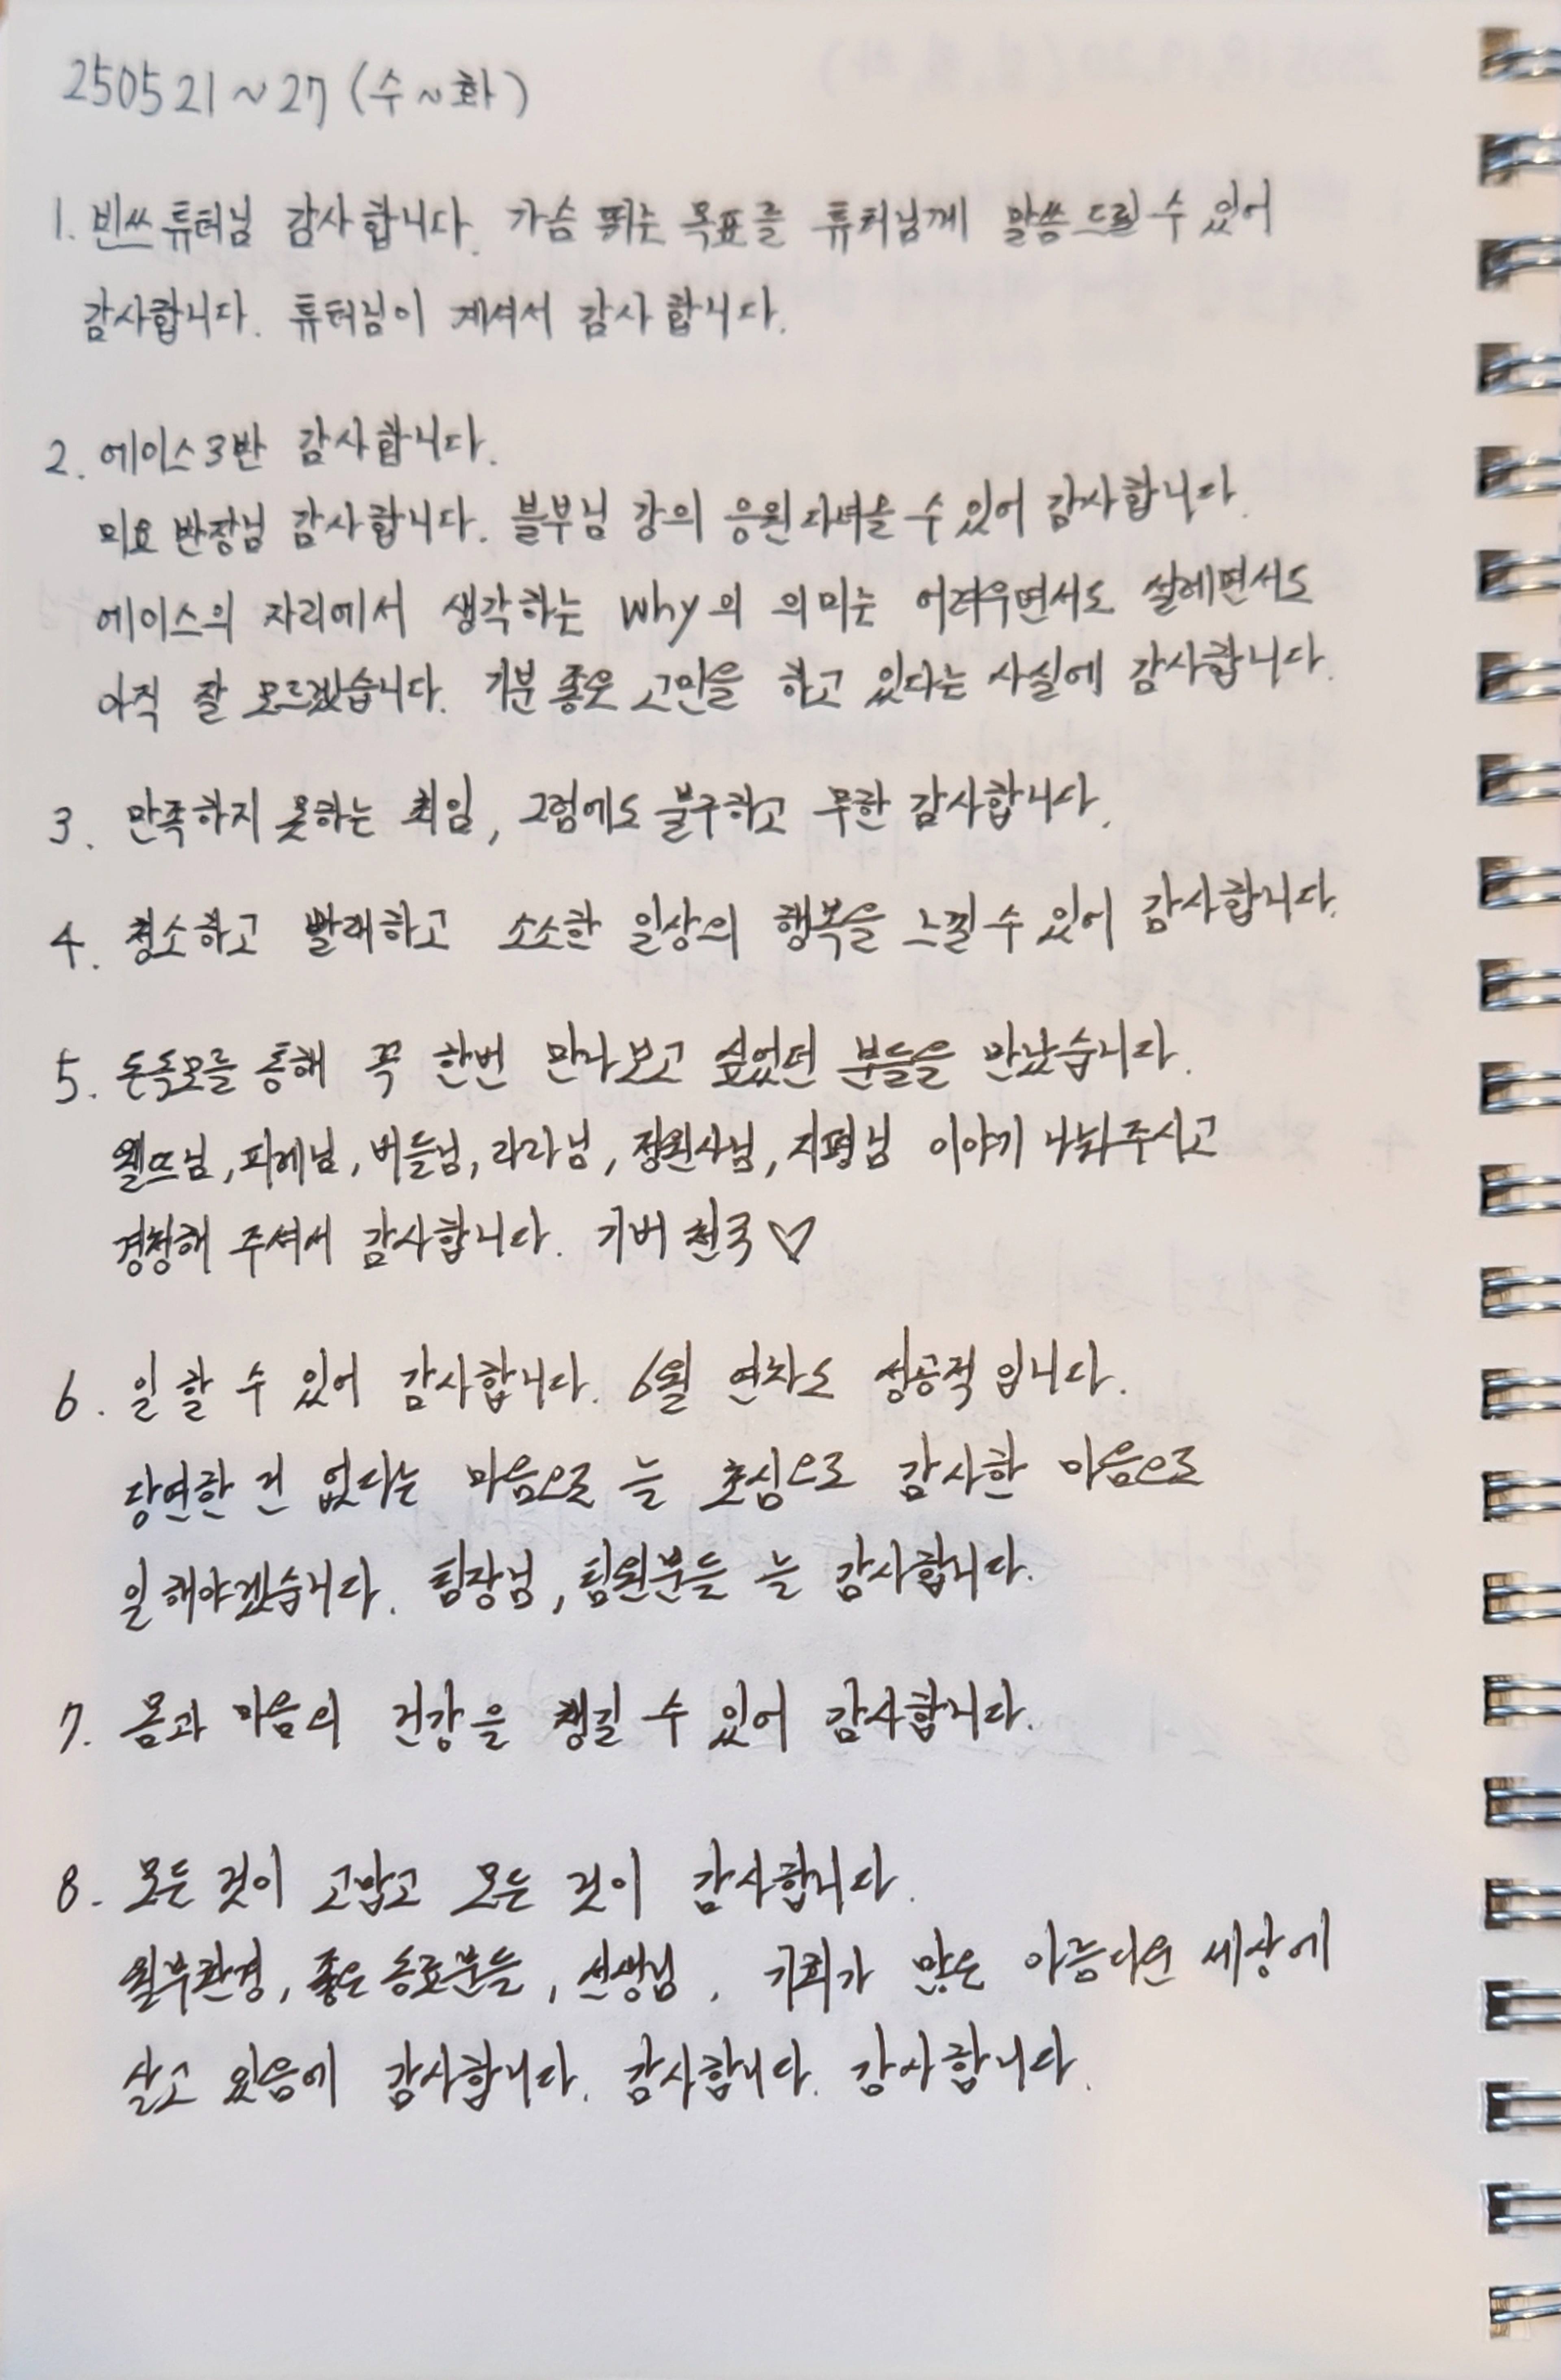 250521~27 (수~화)
1. 빈쓰튜터님 감사합니다. 가슴 뛰는 목표를 튜터님께 말씀드릴 수 있어
감사합니다. 튜터님이 계셔서 감사합니다.
2. 에이스3반 감사합니다.
미요 반장님 감사합니다. 블부님 강의 응원 다녀올 수 있어 감사합니다.
에이스의 자리에서 생각하는 why의 의미는 어려우면서도 설레면서도
아직 잘 모르겠습니다. 기분 좋은 고민을 하고 있다는 사실에 감사합니다.
3. 만족하지 못하는 최임, 그럼에도 불구하고 무한 감사합니다.
4. 청소하고 빨래하고 소소한 일상의 행복을 느낄 수 있어 감사합니다.
5. 돈독모를 통해 꼭 한번 만나보고 싶었던 분들을 만났습니다.
웰뜨님, 피헤님, 버들님, 라라님, 정원사님, 지평님 이야기 나눠주시고
경청해 주셔서 감사합니다. 기버 천국♡
6. 일 할 수 있어 감사합니다. 6월 연차도 성공적입니다.
당연한 건 없다는 마음으로 늘 초심으로 감사한 마음으로
일해야겠습니다. 팀장님, 팀원분들 늘 감사합니다.
7. 몸과 마음의 건강을 챙길 수 있어 감사합니다.
8. 모든 것이 고맙고 모든 것이 감사합니다.
월부환경, 좋은 동료분들, 선생님, 기회가 많은 아름다운 세상에
살고 있음에 감사합니다. 감사합니다. 감사합니다.